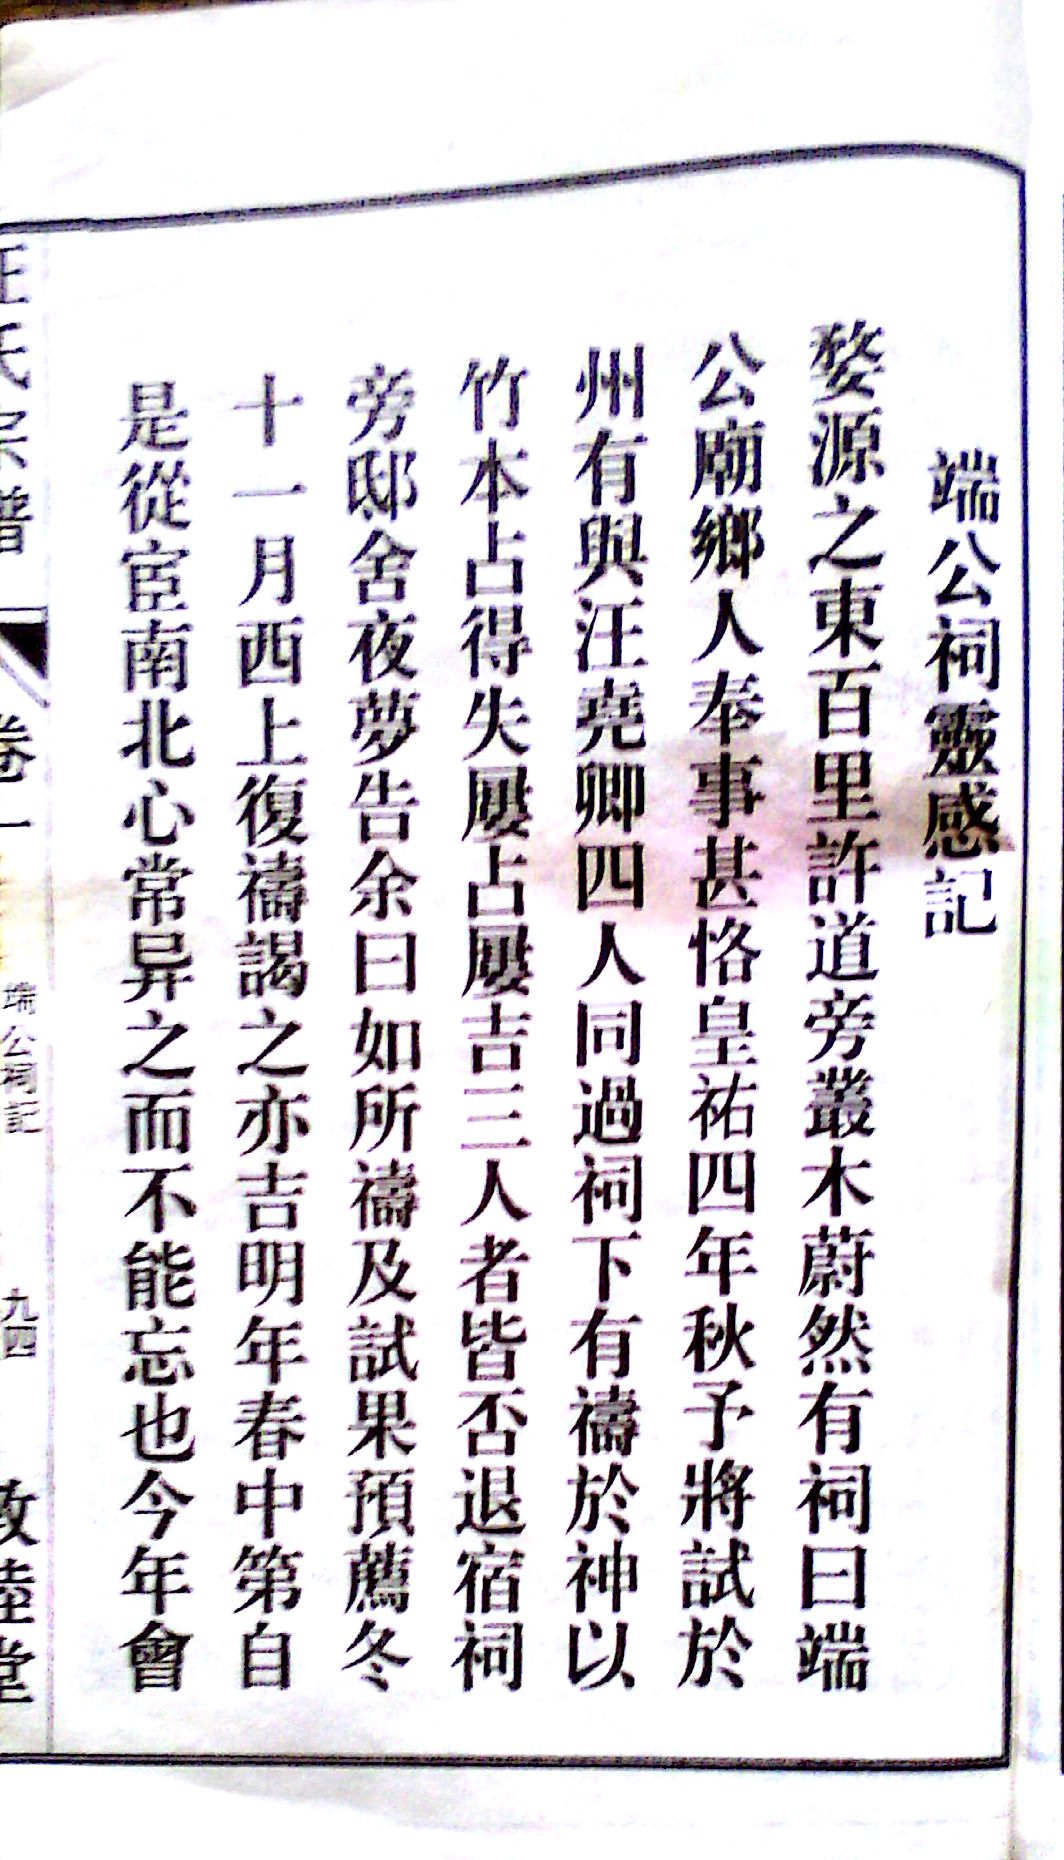 端公祠靈感記
婺源之東百里許道旁叢木蔚然有祠曰端
公廟鄉人奉事甚恪皇祐四年秋予將試於
州有與汪堯卿四人同過祠下有禱於神以
竹本占得失屢占屢吉三人者皆否退宿祠
旁邸舍夜夢告余曰如所禱及試果預薦冬
十一月西上復禱謁之亦吉明年春中第自
是從宦南北心常异之而不能忘也今年會
汪氏宗譜
卷一
端公祠記
九四
敦睦堂